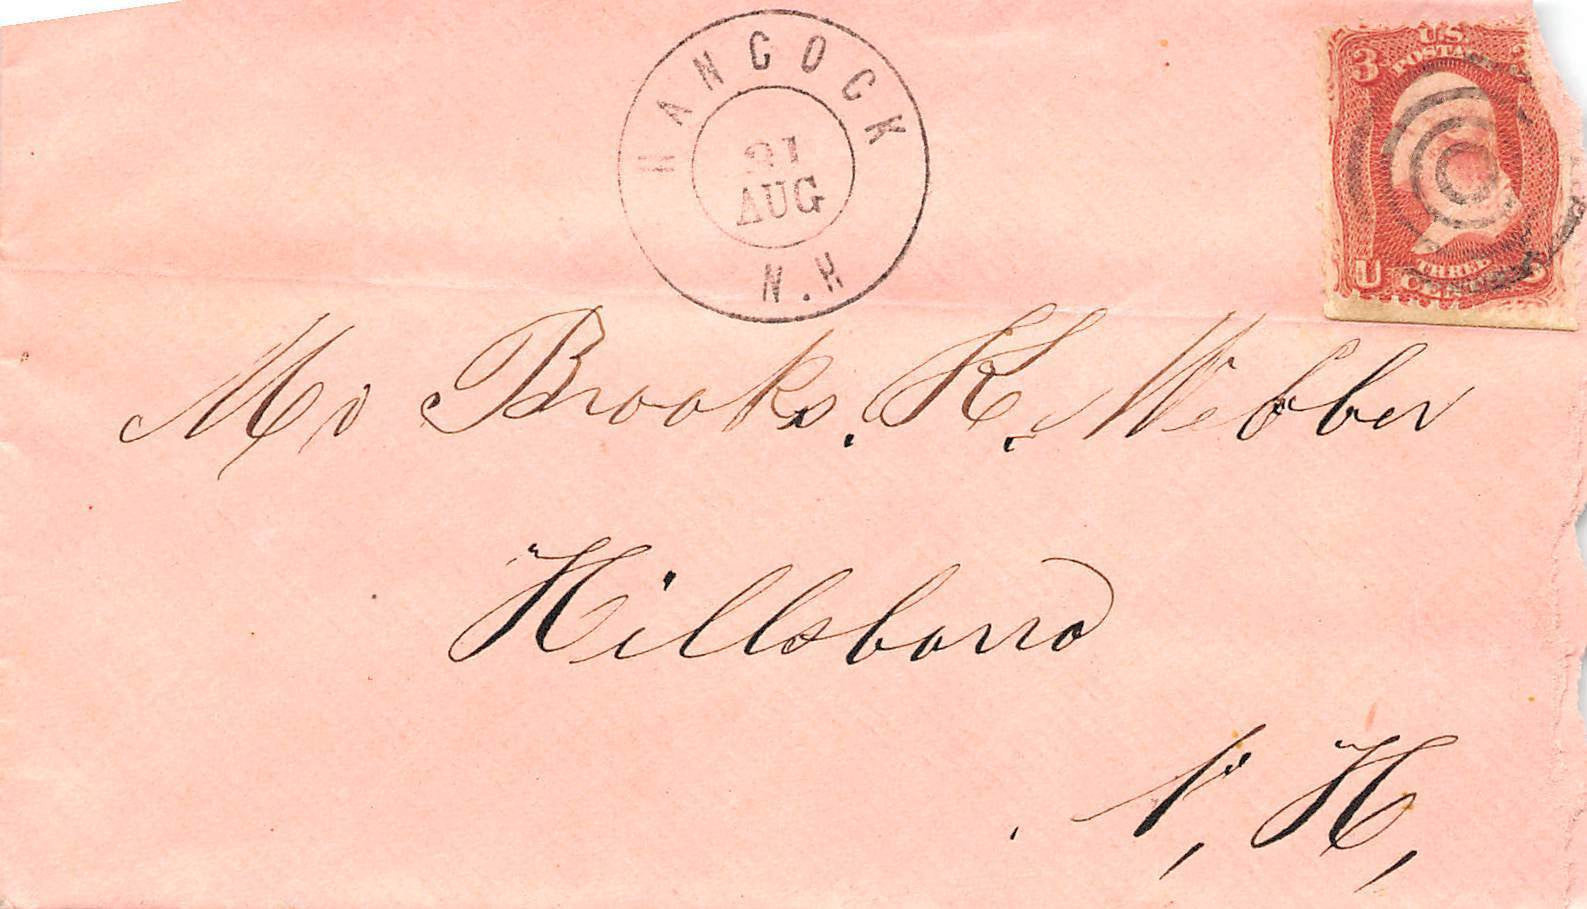 HANCOCK
21
AUG
N.H
3
U.S.
POSTA
U
THREE
CEN
Mr Brooks. K. Webber
Hillsboro
N, H,